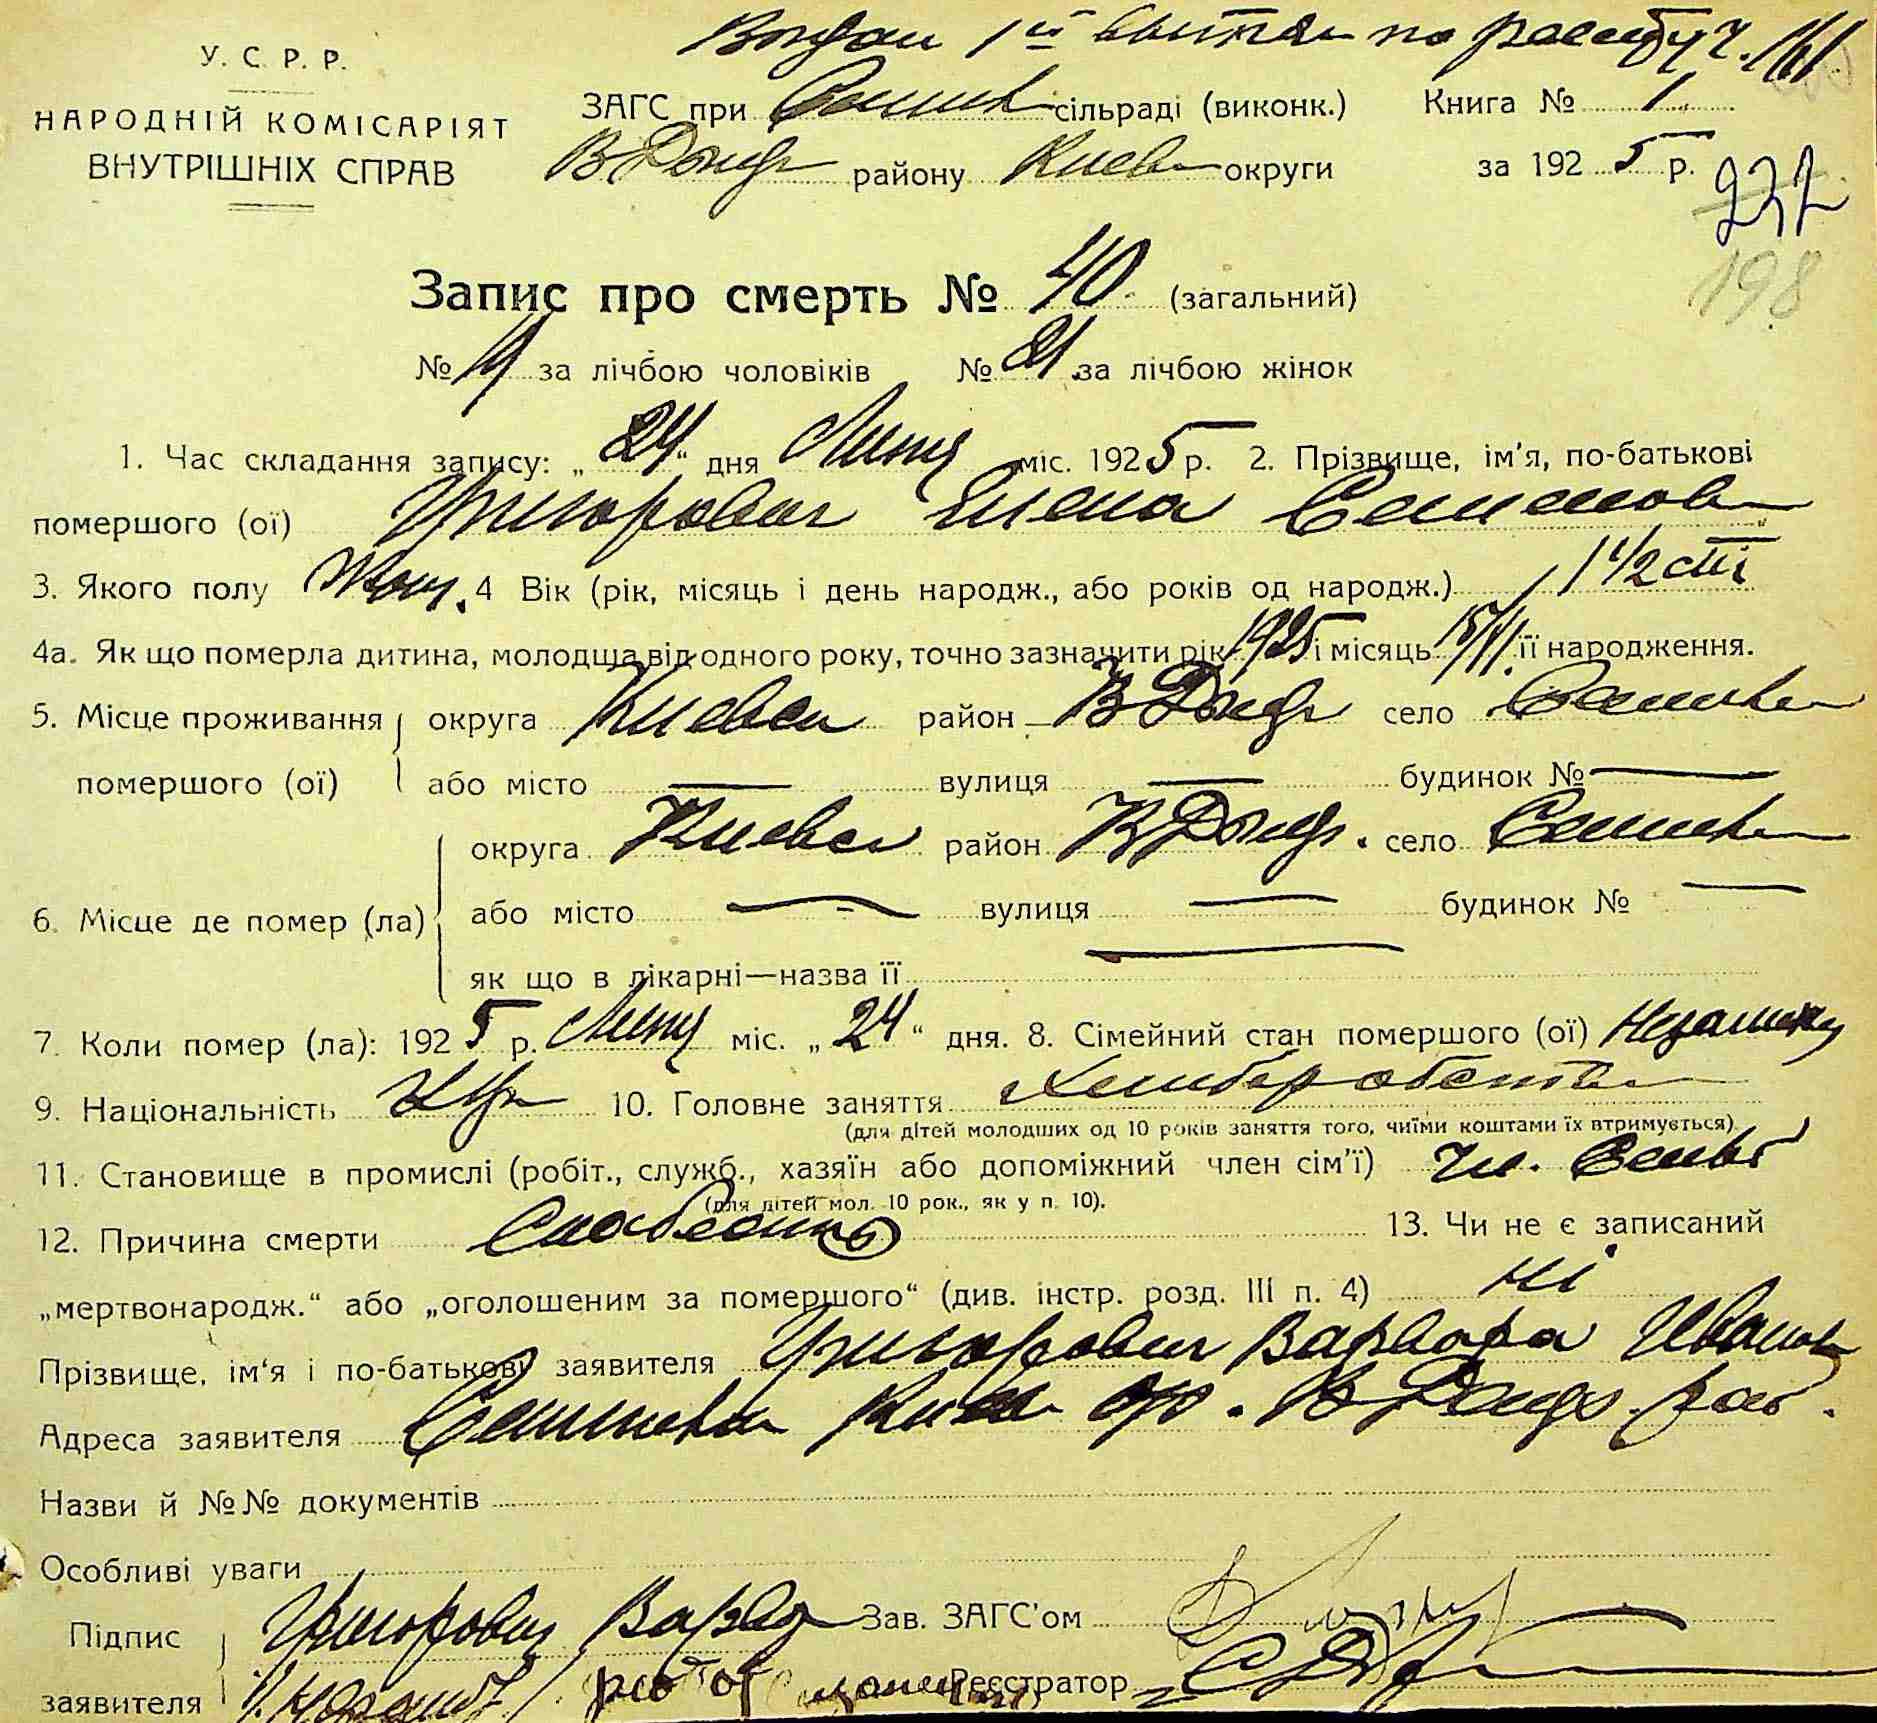 Выдан 1й по реестру
У. С. Р. Р.
НАРОДНІЙ КОМІСАРІЯТ
ВНУТРІШНІХ СПРАВ
ЗАГС при сільраді (виконк.) Книга № 1
району Киев округи за 1925 р.
232
198
Запис про смерть № 40 (загальний)
№ за лічбою чоловіків № 21 за лічбою жінок
1. Час складання запису: „24“ дня Липця міс. 1925 р. 2. Прізвище, ім'я, по-батькові
помершого (ої) Григорович Елена Семенов
3. Якого полу Жен. 4 Вік (рік, місяць і день народж., або років од народж.) 1 1/2
4а. Як що померла дитина, молодша від одного року, точно зазначити рік 1925 і місяць її народження.
5. Місце проживання округа Киевск район село
помершого (ої) або місто — вулиця — будинок № —
округа Киевск район село
6. Місце де помер (ла) або місто — вулиця — будинок № —
як що в лікарні—назва її —
7. Коли помер (ла): 1925 р. Липця міс. „24“ дня. 8. Сімейний стан помершого (ої)
9. Національність Укр 10. Головне заняття Хлиборобство
(для дітей молодших од 10 років заняття того, чиїми коштами їх втримується)
11. Становище в промислі (робіт., служб., хазяїн або допоміжний член сім'ї) Чл.
(для дітей мол. 10 рок., як у п. 10).
12. Причина смерти 13. Чи не є записаний
„мертвонародж.“ або „оголошеним за помершого“ (див. інстр. розд. III п. 4) Ні
Прізвище, ім'я і по-батькові заявителя Григорович Варвара Иванов
Адреса заявителя Киев окр. рай.
Назви й №№ документів
Особливі уваги
Підпис Григорович Варвар Зав. ЗАГС'ом
заявителя Реєстратор